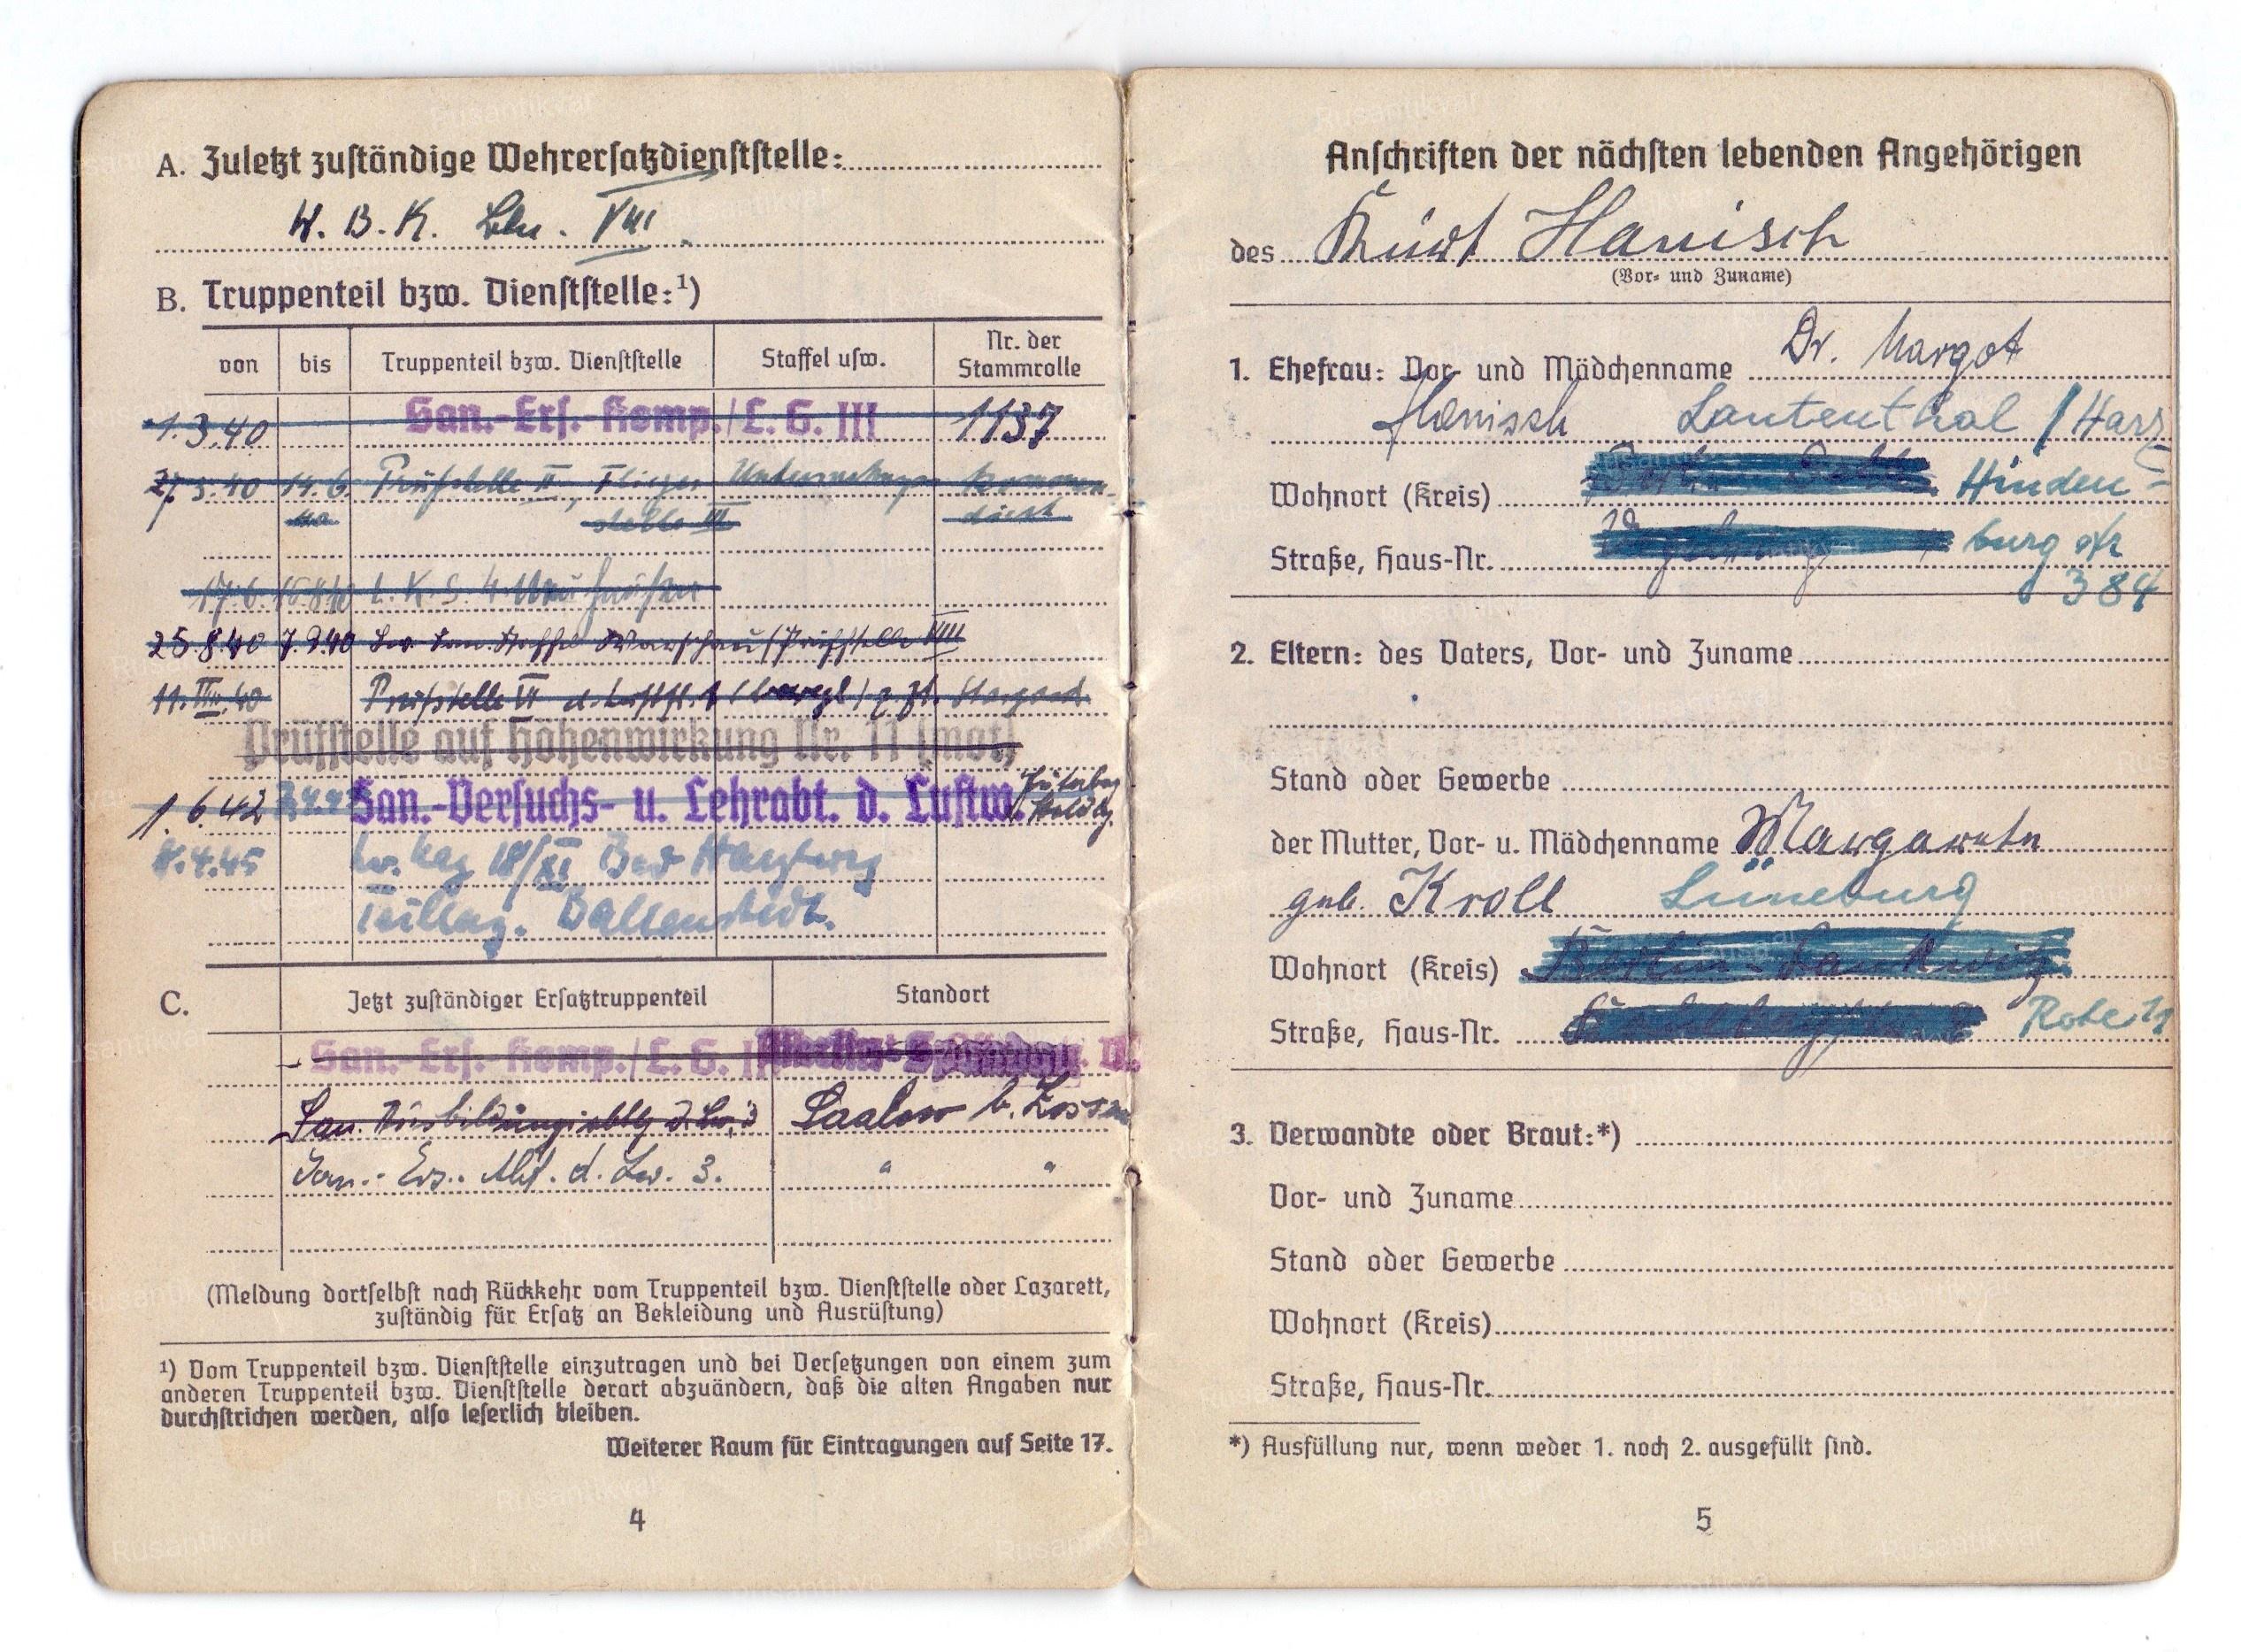 A. Zuletzt zuständige Wehrersatzdienststelle:
W. B. K. Bln. VIII
B. Truppenteil bzw. Dienststelle:¹)
von bis Truppenteil bzw. Dienststelle Staffel usw. Nr. der Stammrolle
1.3.40 San.-Ers.-Komp./L. G. III 1137
27.3.40 14.6 Prüfstelle II, Flieger Untersuchungs
40 stelle III
17.6. 15.8.40 L. K. S. 4
25.8.40 7.9.40 Lw. San. Staffel Warschau (Prüfstelle
11. 40 Prüfstelle VI d. Luftfl. 1 (bewegl) z. Zt. Stargard
Prüfstelle auf Höhenwirkung Nr. 11 (mot)
1.6.42 San.-Versuchs- u. Lehrabt. d. Luftw. Jüterbog
4.45 Lw. Laz 18/XI Bad Harzburg
Teillaz. Ballenstedt.
C. Jetzt zuständiger Ersatztruppenteil Standort
San.-Ers.-Komp./L. G. Berlin-Spandau
San. Ausbildungsabtlg d. Lw. Saalow b. Zossen
San.- Ers.- Abt. d. Lw. 3. " "
(Meldung dortselbst nach Rückkehr vom Truppenteil bzw. Dienststelle oder Lazarett,
zuständig für Ersatz an Bekleidung und Ausrüstung)
¹) Vom Truppenteil bzw. Dienststelle einzutragen und bei Versetzungen von einem zum
anderen Truppenteil bzw. Dienststelle derart abzuändern, daß die alten Angaben nur
durchstrichen werden, also leserlich bleiben.
Weiterer Raum für Eintragungen auf Seite 17.
4
Anschriften der nächsten lebenden Angehörigen
des Kurt Hanisch
(Vor- und Zuname)
1. Ehefrau: Vor- und Mädchenname Dr. Margot
Hanisch Lautenthal / Harz
Wohnort (Kreis) Hinden-
Straße, Haus-Nr. burgstr
384
2. Eltern: des Vaters, Vor- und Zuname
Stand oder Gewerbe
der Mutter, Vor- u. Mädchenname Margarete
geb. Kroll Lüneburg
Wohnort (Kreis) Berlin-Lankwitz
Straße, Haus-Nr.
3. Verwandte oder Braut:*)
Vor- und Zuname
Stand oder Gewerbe
Wohnort (Kreis)
Straße, Haus-Nr.
*) Ausfüllung nur, wenn weder 1. noch 2. ausgefüllt sind.
5
Rusantikvar